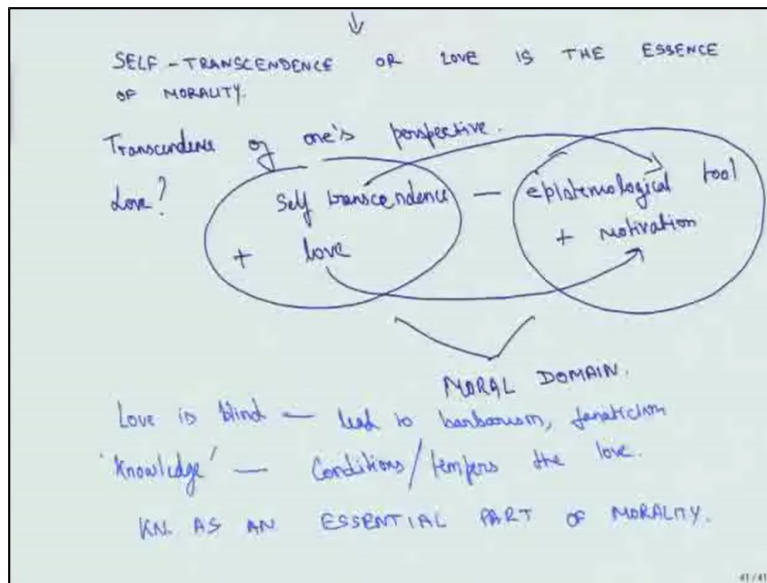 SELF-TRANSCENDENCE OR LOVE IS THE ESSENCE
OF MORALITY.
Transcendence of one's perspective.
Love? Self transcendence — epistemological tool
+ love + motivation
MORAL DOMAIN.
Love is blind — lead to barbarism, fanaticism
'Knowledge' — Conditions/tempers the love.
KN. AS AN ESSENTIAL PART OF MORALITY.
41/41